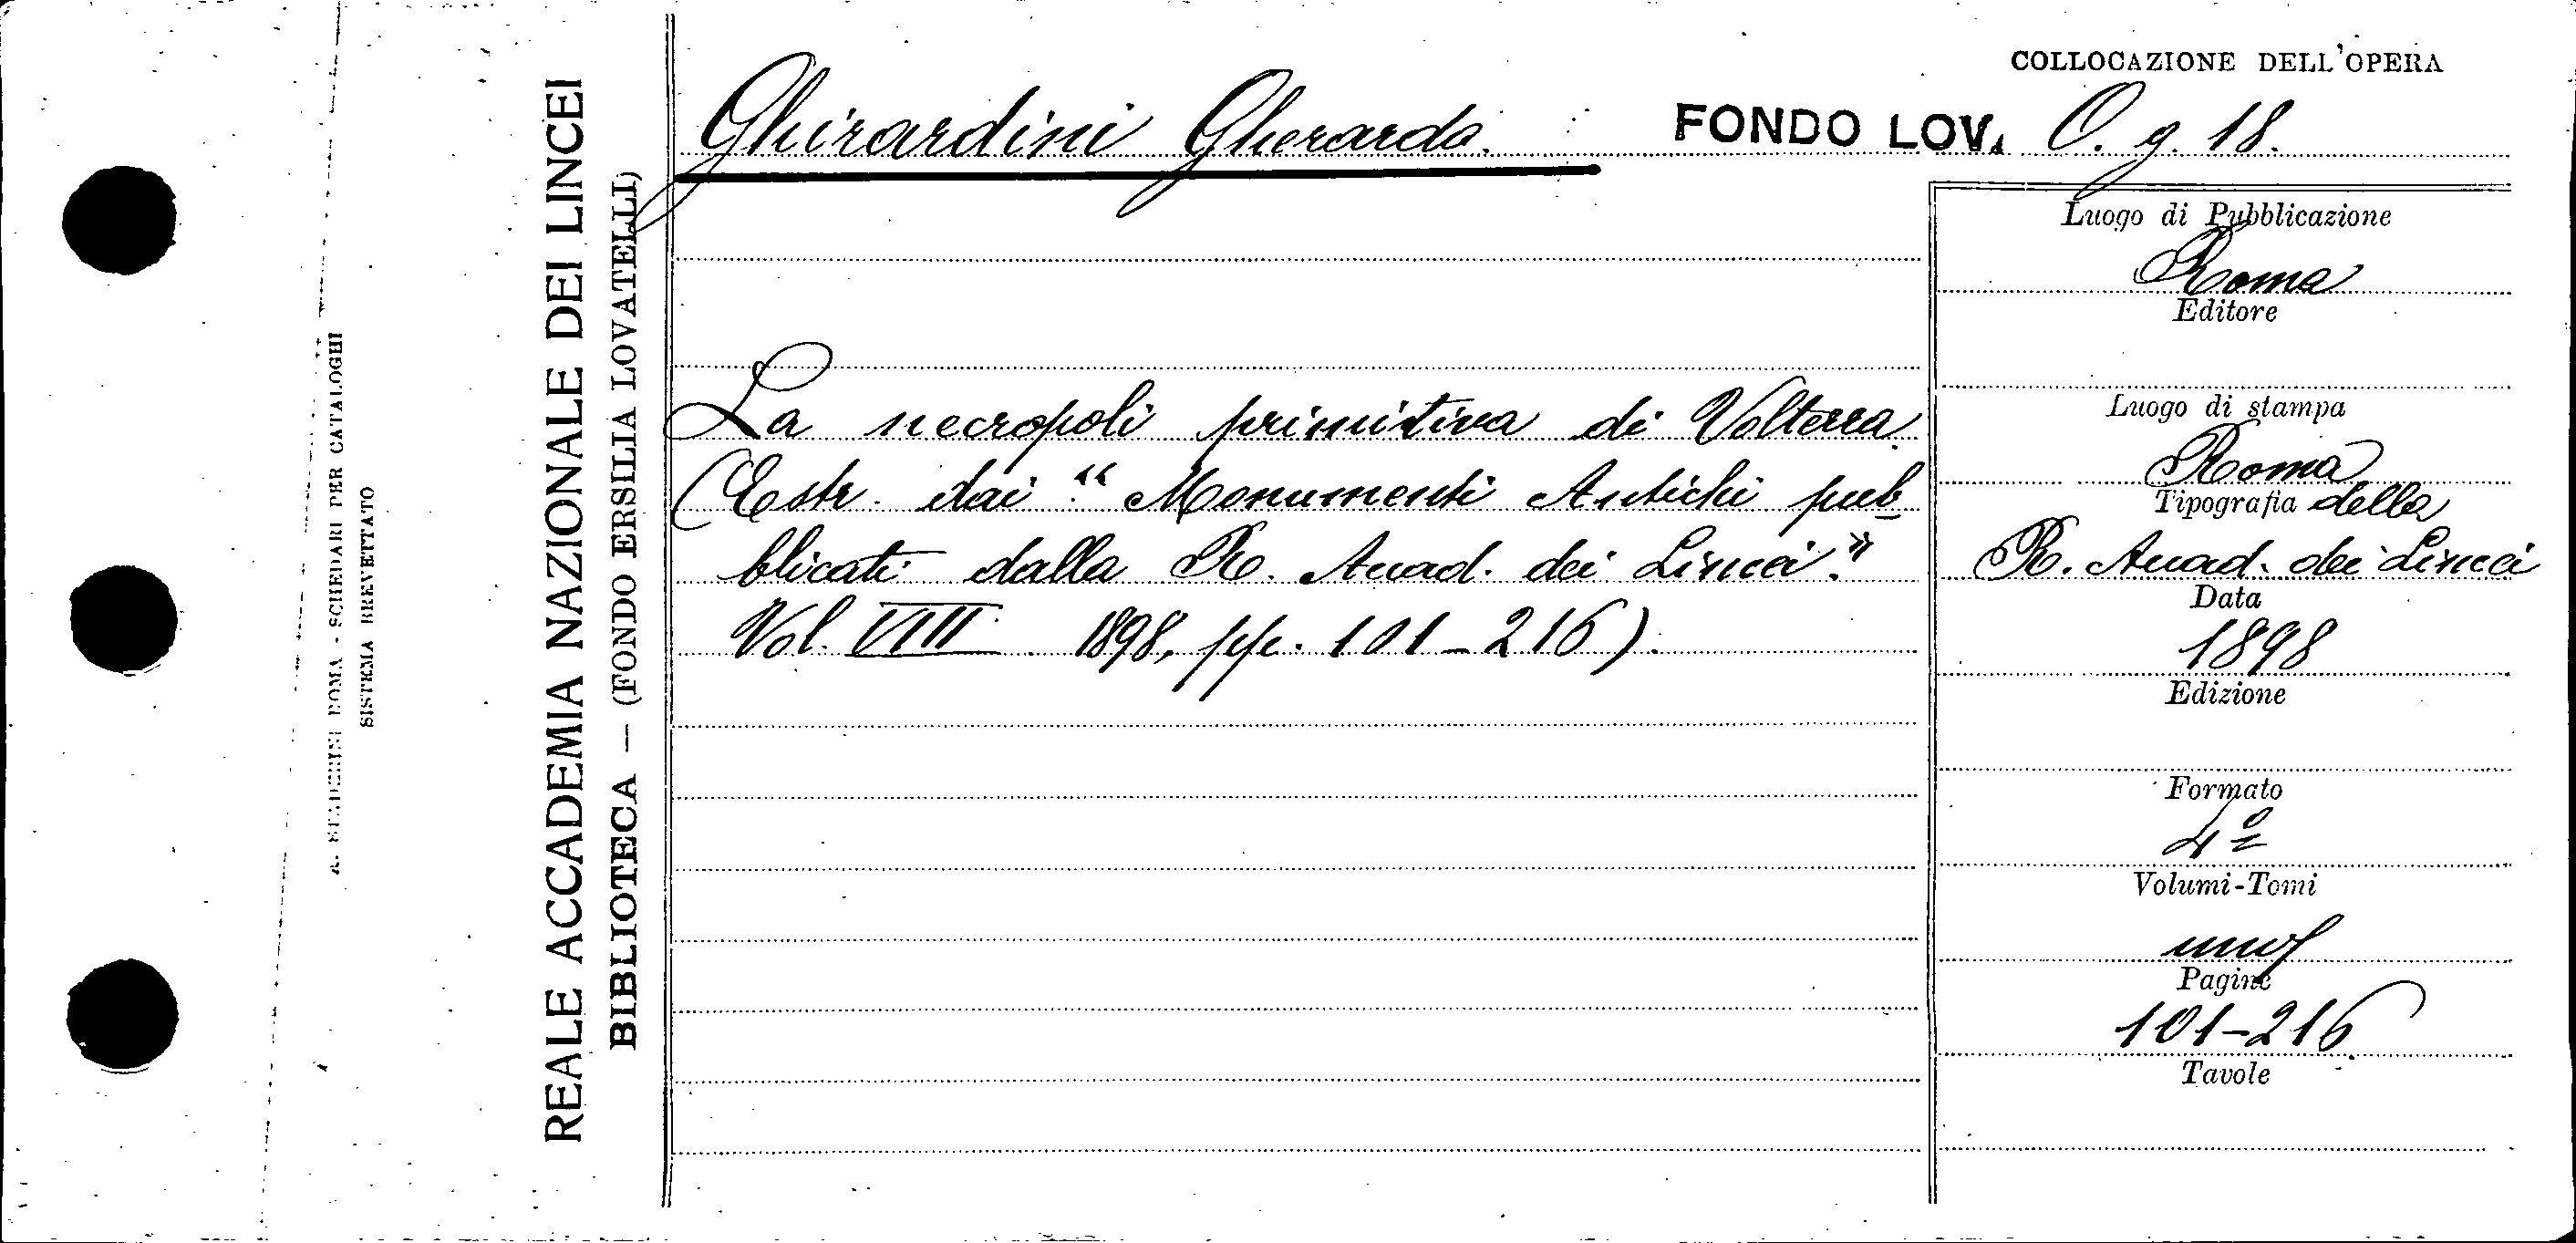 COLLOCAZIONE DELL'OPERA
Ghirardini Gherardo.
FONDO LOV. O. g. 18.
La necropoli primitiva di Volterra
(Estr. dai "Monumenti Antichi pub
blicati dalla R. Accad. dei Lincei."
Vol. VIII 1898, pp. 101-216).
Luogo di Pubblicazione
Roma
Editore
Luogo di stampa
Roma
Tipografia della
R. Accad. dei Lincei
Data
1898
Edizione
Formato
4º
Volumi-Tomi
uno
Pagine
101-216
Tavole
REALE ACCADEMIA NAZIONALE DEI LINCEI
BIBLIOTECA — (FONDO ERSILIA LOVATELLI)
A. STADERINI ROMA - SCHEDARI PER CATALOGHI
SISTEMA BREVETTATO